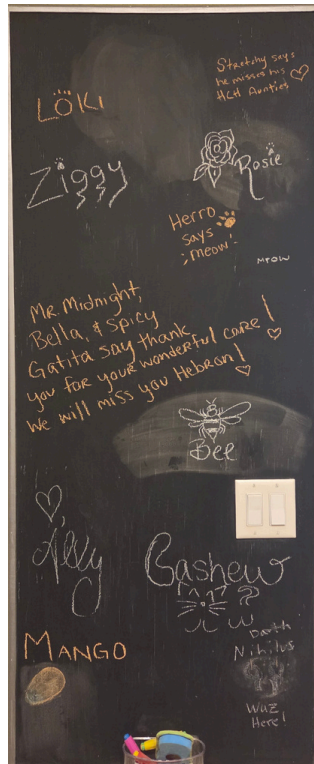 Stretchy says
he misses his
HCH Aunties
LÖKI
Ziggy
Rosie
Herro
says
meow
MEOW
Mr. Midnight,
Bella, & Spicy
Gatita say thank
you for your wonderful care!
We will miss you Hebron!
Bee
Ally
Cashew
MANGO
Darth
Nihilus
Waz
Here!